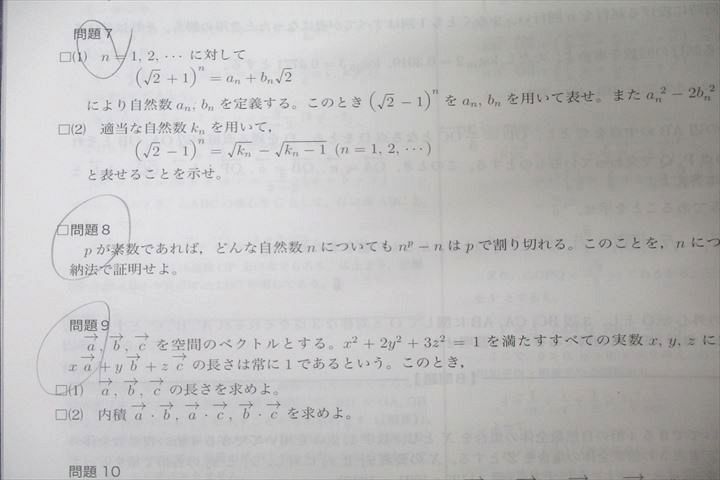 問題7
□(1) n = 1, 2, ⋯ に対して
(√2 + 1)^n = a_n + b_n√2
により自然数 a_n, b_n を定義する。このとき (√2 − 1)^n を a_n, b_n を用いて表せ。また a_n^2 − 2b_n^2
□(2) 適当な自然数 k_n を用いて,
(√2 − 1)^n = √k_n − √(k_n − 1) (n = 1, 2, ⋯)
と表せることを示せ。
□問題8
p が素数であれば, どんな自然数 n についても n^p − n は p で割り切れる。このことを, n につ
納法で証明せよ。
問題9
a→, b→, c→ を空間のベクトルとする。x^2 + 2y^2 + 3z^2 = 1 を満たすすべての実数 x, y, z に
x a→ + y b→ + z c→ の長さは常に 1 であるという。このとき,
□(1) a→, b→, c→ の長さを求めよ。
□(2) 内積 a→ · b→, a→ · c→, b→ · c→ を求めよ。
問題10